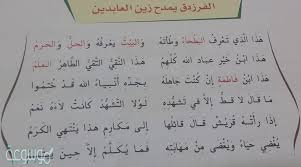 الفرزدق يمدح زين العابدين
هَذا الَّذي تَعْرِفُ البَطْحاءُ وَطْأَتَهُ وَالبَيْتُ يَعْرِفُهُ وَالحِلُّ وَالحَرَمُ
هَذا ابْنُ خَيْرِ عِبادِ اللهِ كُلِّهِمُ هَذا التَّقِيُّ النَّقِيُّ الطّاهِرُ العَلَمُ
هَذا ابْنُ فاطِمَةٍ إِنْ كُنْتَ جاهِلَهُ بِجَدِّهِ أَنْبِياءُ اللهِ قَدْ خُتِمُوا
ما قالَ لا قَطُّ إِلّا في تَشَهُّدِهِ لَوْلا التَّشَهُّدُ كانَتْ لاءَهُ نَعَمُ
إِذا رَأَتْهُ قُرَيْشٌ قالَ قائِلُها إِلى مَكارِمِ هَذا يَنْتَهي الكَرَمُ
يُغْضي حَياءً وَيُغْضى مِنْ مَهابَتِهِ فَما يُكَلَّمُ إِلّا حينَ
موسوعة